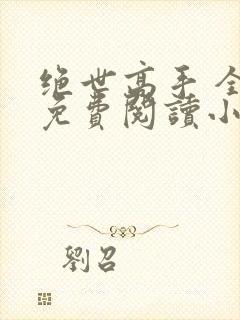 绝世高手 全
免費閱讀小
劉召